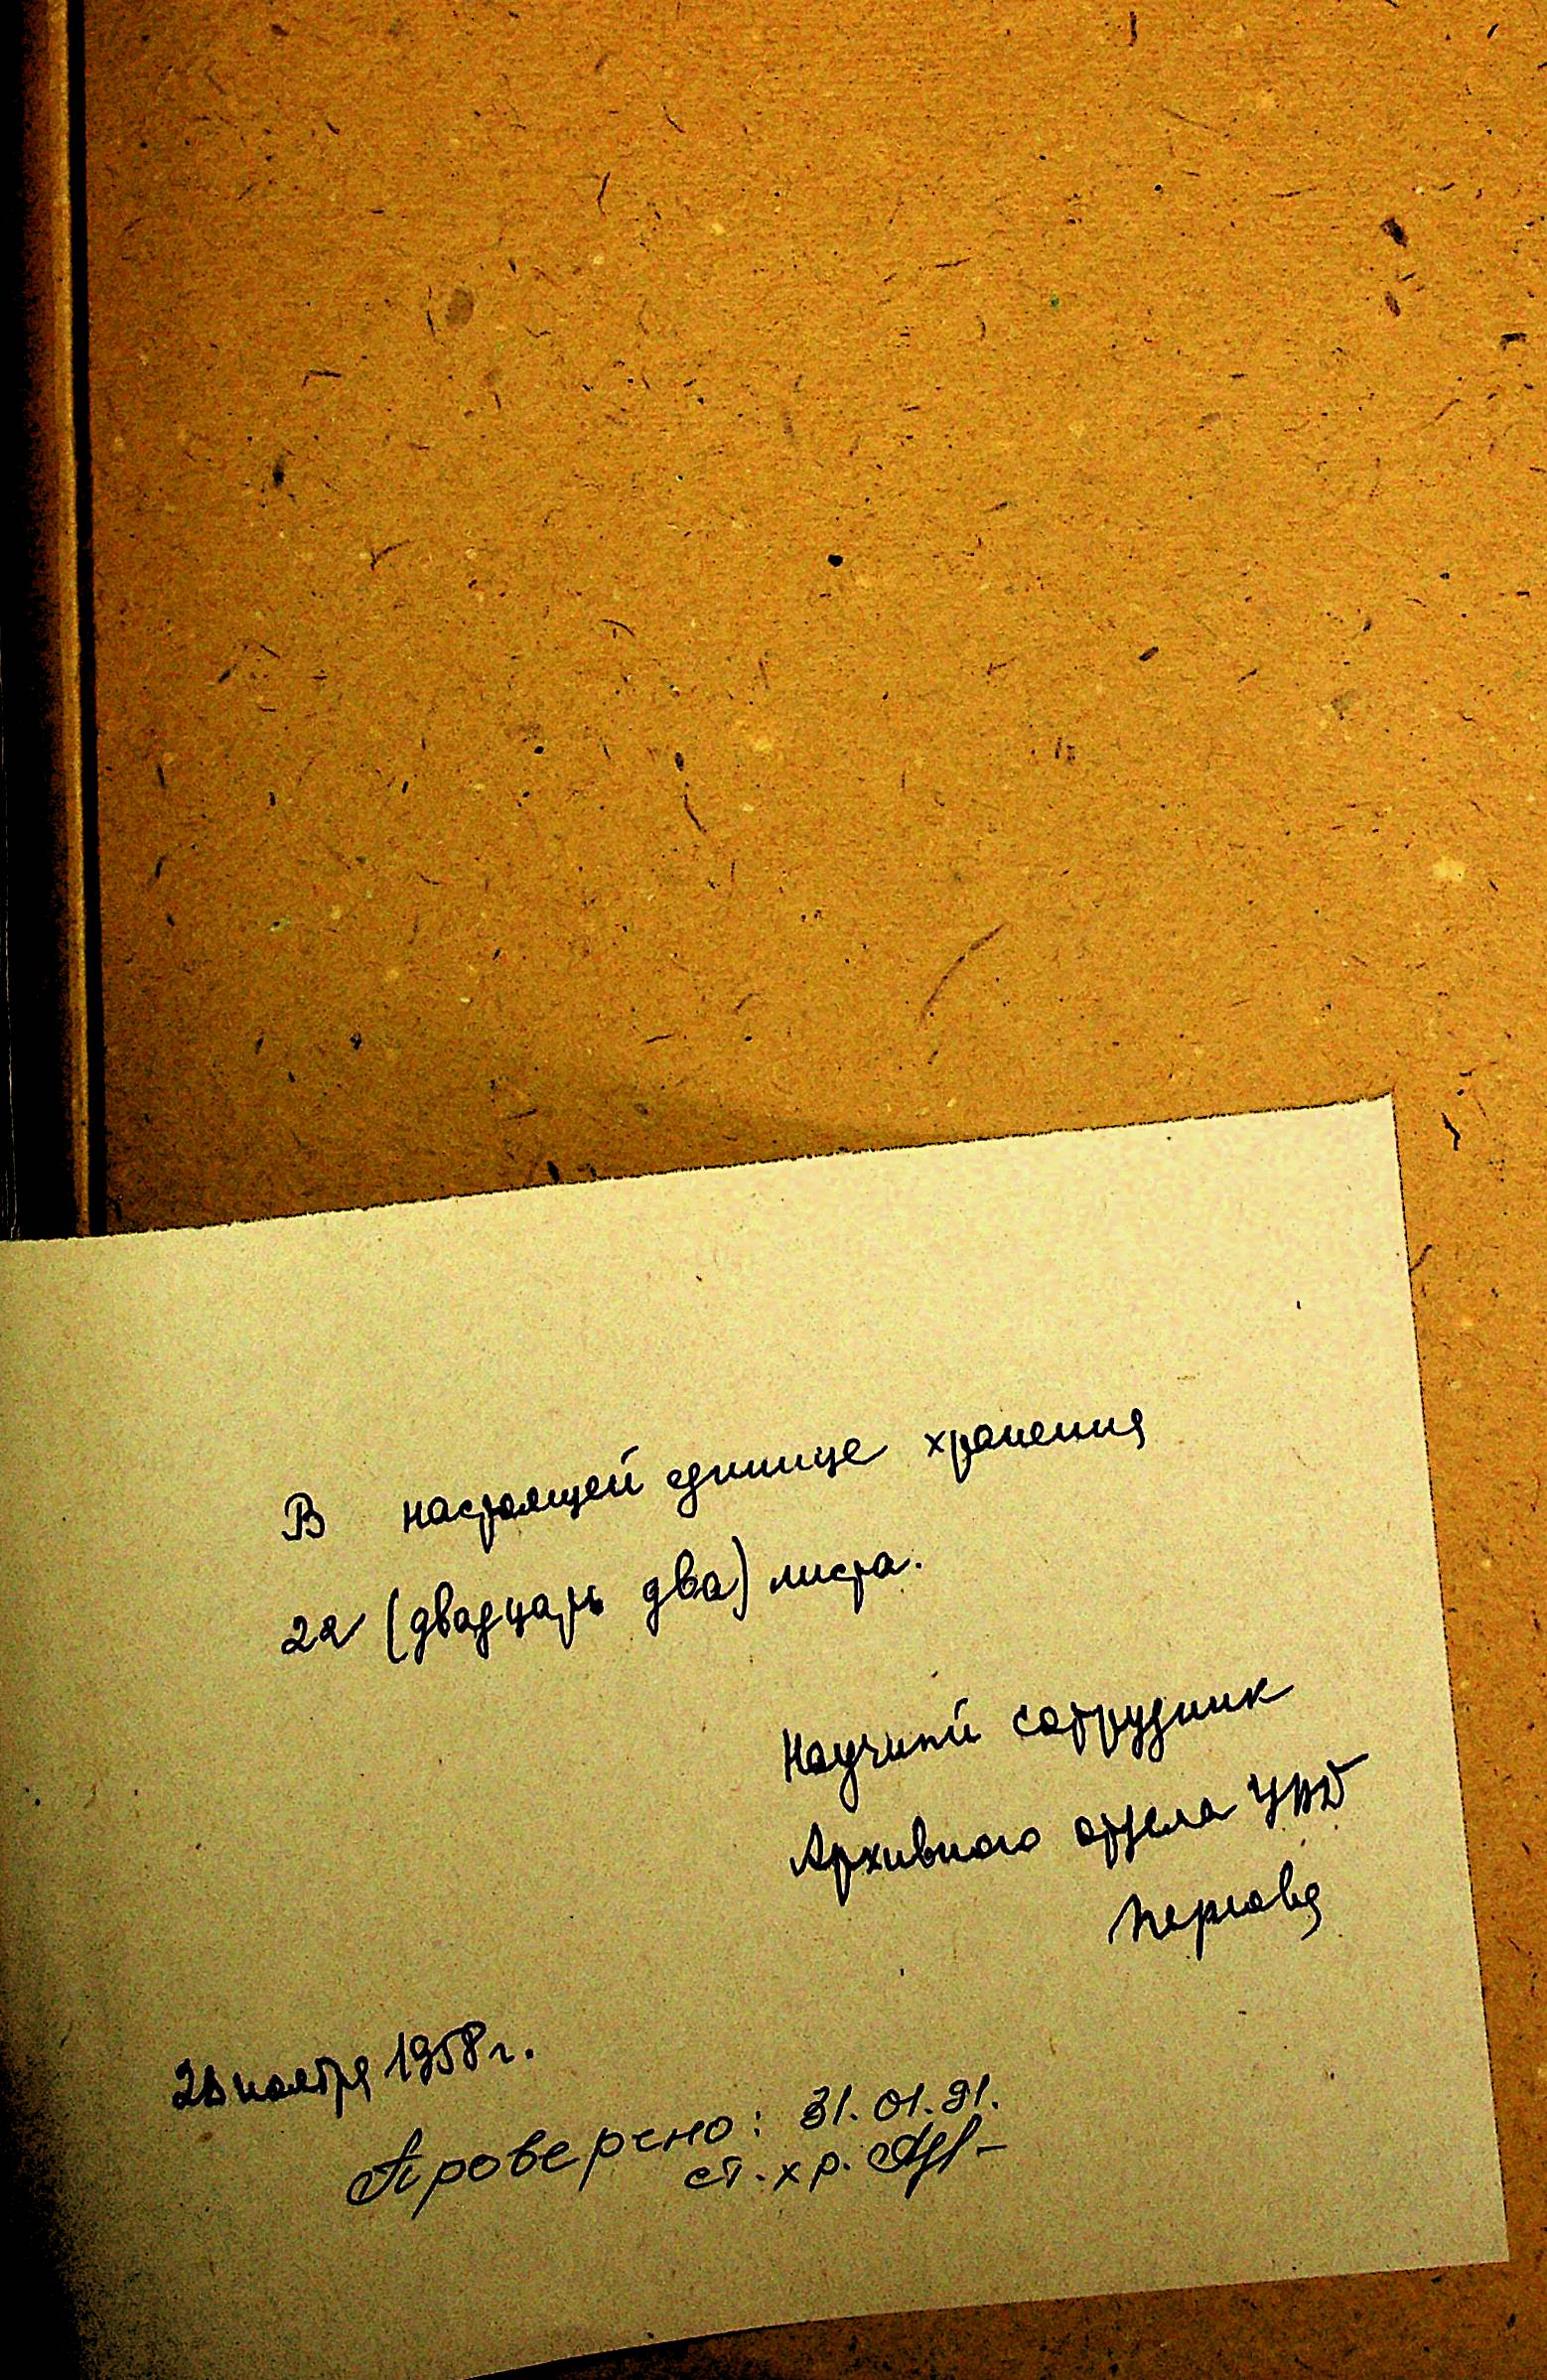 В настоящей единице хранения
22 (двадцать два) листа.
Научный сотрудник
Архивного отдела УВД
ноября 1958 г.
Проверено: 31.01.91.
ст. хр.